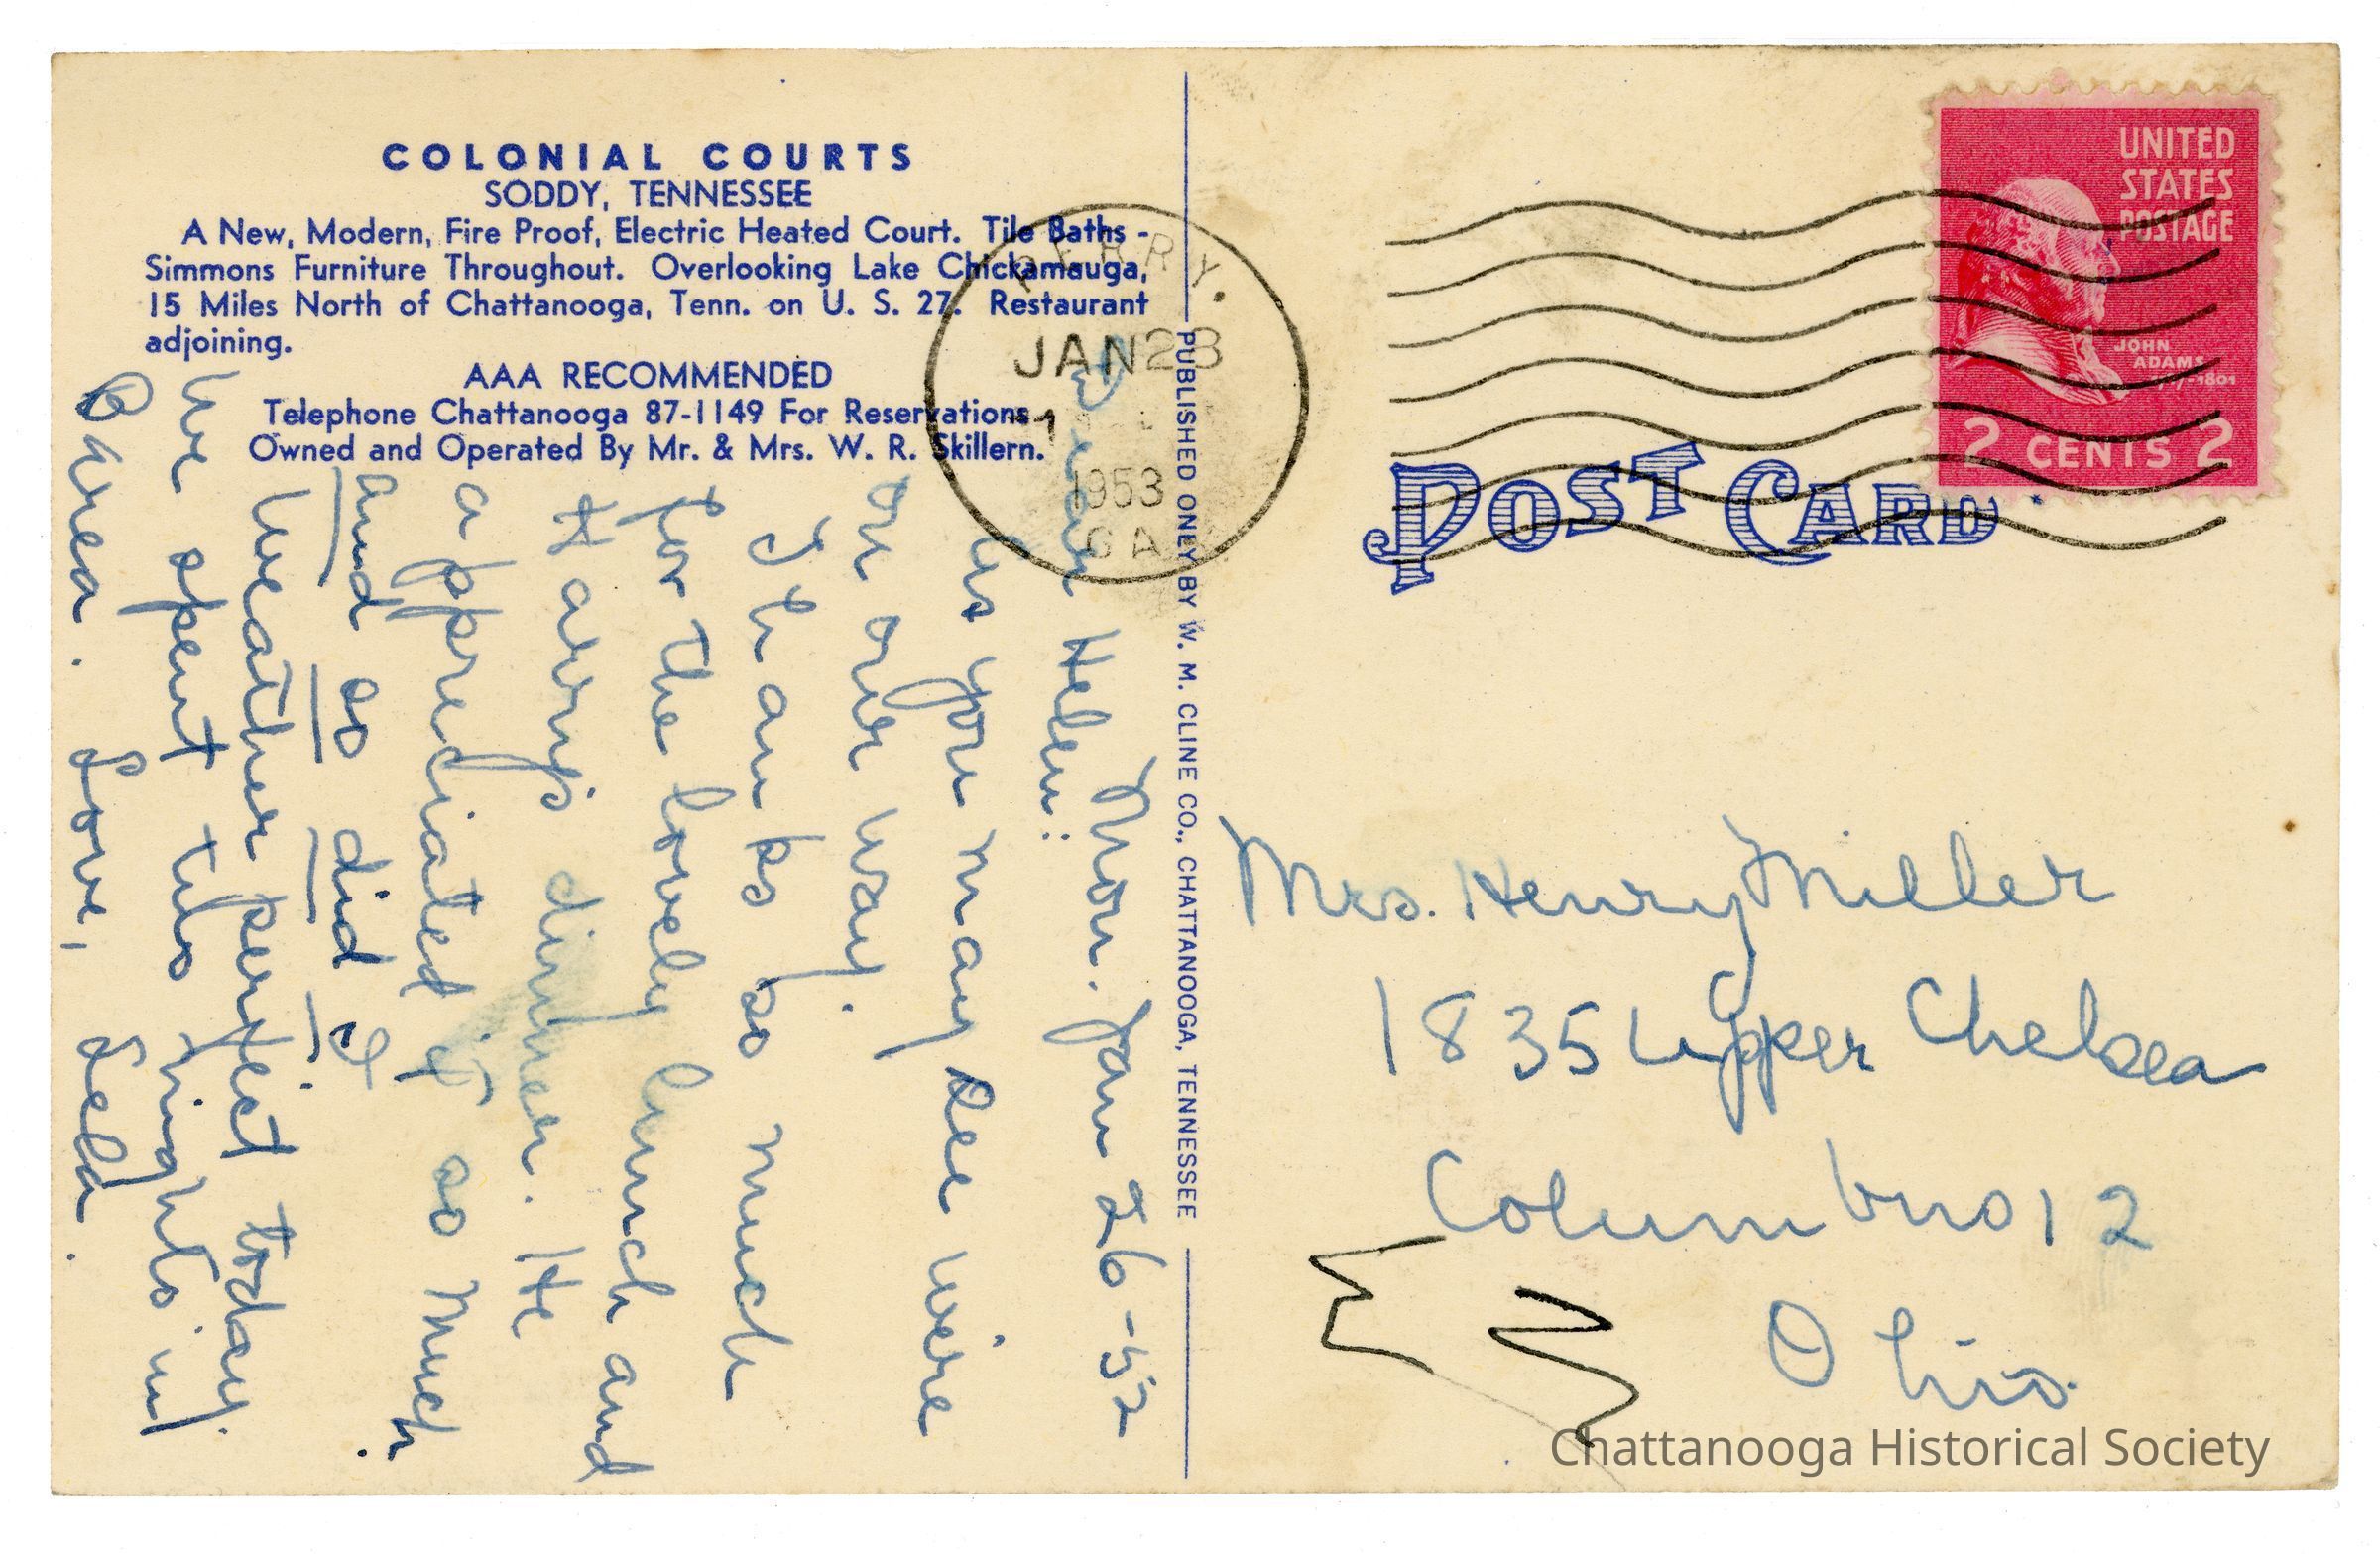 COLONIAL COURTS
SODDY, TENNESSEE
A New, Modern, Fire Proof, Electric Heated Court. Tile Baths -
Simmons Furniture Throughout. Overlooking Lake Chickamauga,
15 Miles North of Chattanooga, Tenn. on U. S. 27. Restaurant
adjoining.
AAA RECOMMENDED
Telephone Chattanooga 87-1149 For Reservations.
Owned and Operated By Mr. & Mrs. W. R. Skillern.
Mon. Jan 26-52
Dear Helen:
As you may see we're
on our way.
Thanks so much
for the lovely lunch and
dinner. He
appreciated it so much
and so did I
Weather perfect today.
We spent two nights in
Love,
PUBLISHED ONLY BY W. M. CLINE CO., CHATTANOOGA, TENNESSEE
PERRY.
JAN 28
1953
GA
UNITED
STATES
POSTAGE
JOHN
ADAMS
2 CENTS 2
POST CARD
Mrs. Henry Miller
1835 Upper Chelsea
Columbus 12
Ohio.
Chattanooga Historical Society